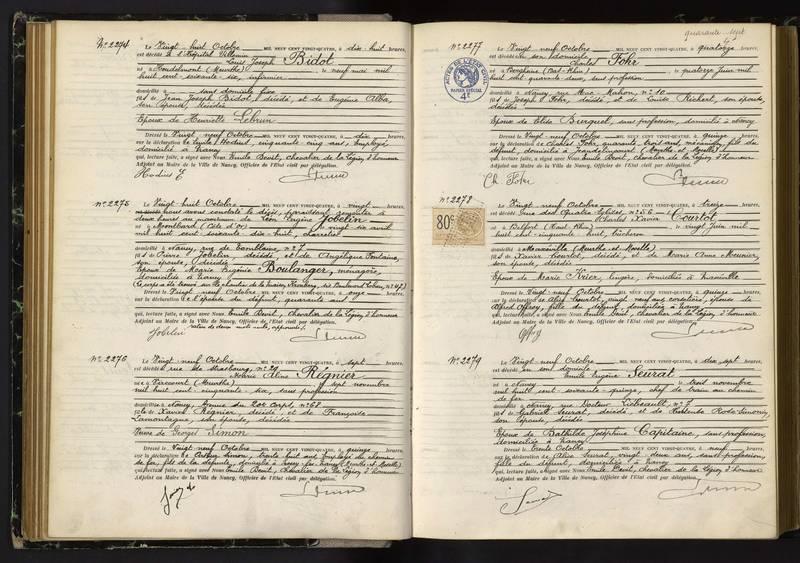 N° 2274
Le Vingt-huit Octobre MIL NEUF CENT VINGT-QUATRE, à dix-huit heures,
est décédé à l'Hôpital Villemin
Louis Joseph Bidot
né à Houdelmont (Meurthe) le neuf mai mil
huit cent soixante six, infirmier
domicilié à sans domicile fixe
fils de Jean Joseph Bidot, décédé, et de Eugénie Alba,
son épouse, décédée
Epoux de Henriette Lebrun
Dressé le Vingt neuf Octobre MIL NEUF CENT VINGT-QUATRE, à dix heures,
sur la déclaration de Emile Hodius, cinquante cinq ans, employé
domicilié à Nancy
qui, lecture faite, a signé avec Nous Emile Devit, chevalier de la Légion d'honneur
Adjoint au Maire de la Ville de Nancy, Officier de l'Etat civil par délégation.
Hodius E
N° 2275
Le Vingt huit Octobre MIL NEUF CENT VINGT-QUATRE, à vingt heures,
nous avons constaté le décès, paraissant remonter à
deux heures au maximum de Léon Eugène Jobelin
né à Montbard (Côte d'or) le vingt six avril
mil huit cent soixante dix-huit, charretier
domicilié à Nancy, rue de Tomblaine, n° 7
fils de Pierre Jobelin décédé, et de Angélique Fontaine,
son épouse, décédée
Epoux de Marie Eugénie Boulanger, ménagère,
domiciliée à Nancy
Dressé le Vingt neuf Octobre MIL NEUF CENT VINGT-QUATRE, à onze heures,
sur la déclaration de l'épouse du défunt, quarante ans
qui, lecture faite, a signé avec Nous Emile Devit, chevalier de la Légion d'honneur
Adjoint au Maire de la Ville de Nancy, Officier de l'Etat civil par délégation.
Jobelin
N° 2276
Le Vingt-neuf Octobre MIL NEUF CENT VINGT-QUATRE, à sept heures,
est décédée rue de Strasbourg, n° 29
Aline Régnier
née à Xirocourt (Meurthe) le sept novembre
mil huit cent cinquante six, sans profession
domiciliée à Nancy, Avenue du 20e Corps, n° 68
fille de Xavier Régnier, décédé, et de Françoise
Lamontagne, son épouse, décédée
Veuve de Georges Simon
Dressé le Vingt neuf Octobre MIL NEUF CENT VINGT-QUATRE, à quinze heures,
sur la déclaration de Arthur Simon, trente huit ans, employé de chemin
de fer, fils de la défunte, domicilié à
qui, lecture faite, a signé avec Nous Emile Devit, chevalier de la Légion d'honneur
Adjoint au Maire de la Ville de Nancy, Officier de l'Etat civil par délégation.
quarante sept
N° 2277
Le Vingt-neuf Octobre MIL NEUF CENT VINGT-QUATRE, à quatorze heures,
est décédé en son domicile
Charles Fohr
né à (Bas-Rhin) le quatorze juin mil
huit cent quarante deux, sans profession
domicilié à Nancy rue Mac-Mahon, n° 10
fils de Joseph Fohr, décédé, et de Louise Richert, son épouse,
décédée
Epoux de Elisa Burguet, sans profession, domiciliée à Nancy
Dressé le Vingt-neuf Octobre MIL NEUF CENT VINGT-QUATRE, à quinze heures,
sur la déclaration de Charles Fohr, quarante trois ans, mécanicien, fils du
défunt, domicilié à Jarville (Meurthe et Moselle)
qui, lecture faite, a signé avec Nous Emile Devit, chevalier de la Légion d'honneur
Adjoint au Maire de la Ville de Nancy, Officier de l'Etat civil par délégation.
Ch. Fohr
PAPIER SPÉCIAL
N° 2278
80c
Le Vingt neuf Octobre MIL NEUF CENT VINGT-QUATRE, à treize heures,
est décédé rue des Quatre Eglises, n° 56
Nicolas Xavier Courtot
né à Belfort (Haut Rhin) le vingt juin mil
huit cent cinquante huit, bûcheron
domicilié à Maxéville (Meurthe et Moselle)
fils de Xavier Courtot, décédé, et de Marie Anne Meunier,
son épouse, décédée
Epoux de Marie Krier, lingère, domiciliée à Maxéville
Dressé le Vingt-neuf Octobre MIL NEUF CENT VINGT-QUATRE, à quinze heures,
sur la déclaration de Alice Courtot, vingt neuf ans, cordelière, épouse de
Alfred Offroy, fille du défunt, domiciliée à Nancy
qui, lecture faite, a signé avec Nous Emile Devit, chevalier de la Légion d'honneur
Adjoint au Maire de la Ville de Nancy, Officier de l'Etat civil par délégation.
N° 2279
Le Vingt neuf Octobre MIL NEUF CENT VINGT-QUATRE, à dix sept heures,
est décédé en son domicile
Emile Eugène Seurat
né à Nancy le trois novembre
mil huit cent soixante quinze, chef de train au chemin
de fer
domicilié à Nancy, rue Docteur Liébeault, n° 7
fils de Gabriel Seurat, décédé, et de
son épouse, décédée
Epoux de Bathilde Joséphine Capitaine, sans profession,
domiciliée à Nancy
Dressé le Trente Octobre MIL NEUF CENT VINGT-QUATRE, à neuf heures,
sur la déclaration de Alice Seurat, vingt deux ans, sans profession,
fille du défunt, domiciliée à Nancy
qui, lecture faite, a signé avec Nous Emile Devit, chevalier de la Légion d'honneur
Adjoint au Maire de la Ville de Nancy, Officier de l'Etat civil par délégation.